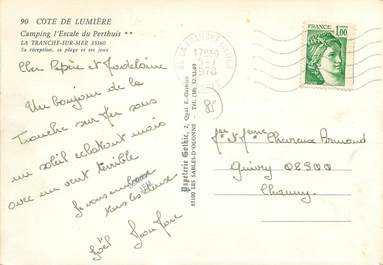 90 COTE DE LUMIÈRE
Camping l'Escale du Perthuis **
LA TRANCHE-SUR-MER 85360
Sa réception, sa plage et ses jeux
Cher Pépère et Madeleine
Un bonjour de la
Tranche sur Mer sous
un soleil éclatant mais
avec un vent terrible
Je vous embrasse
tous les deux.
Joël
Papeterie Gothic, 2, Quai E.-Garnier
85100 LES SABLES-D'OLONNE - Tél. (30)
85 LA TRANCHE S/MER
17H30
1978
FRANCE
1,00
85
Chevreux Armand
02300
Chauny